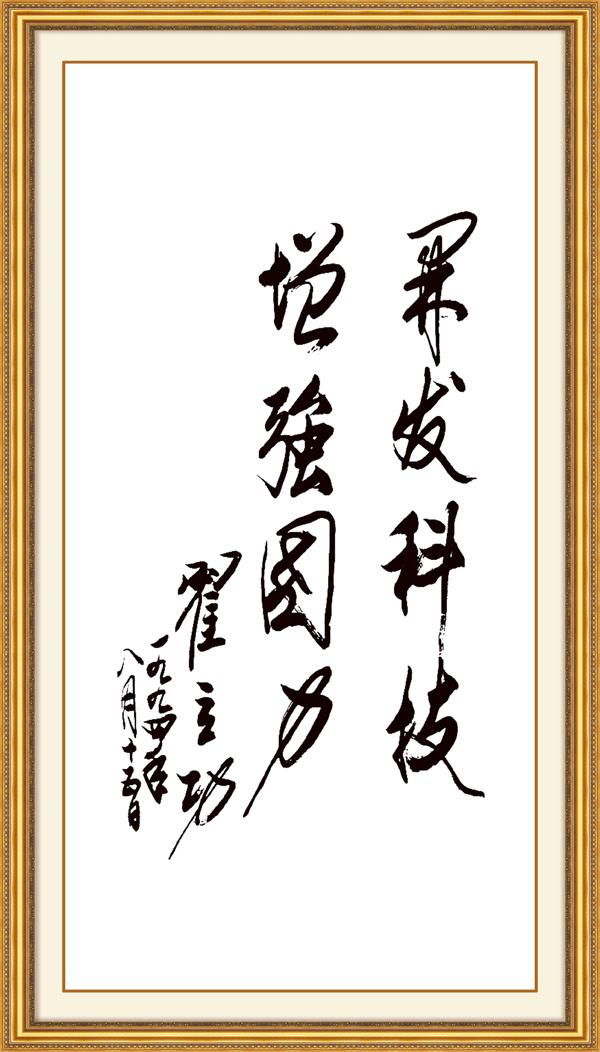 开发科技
增强国力
翟立功
一九九四年
八月十五日